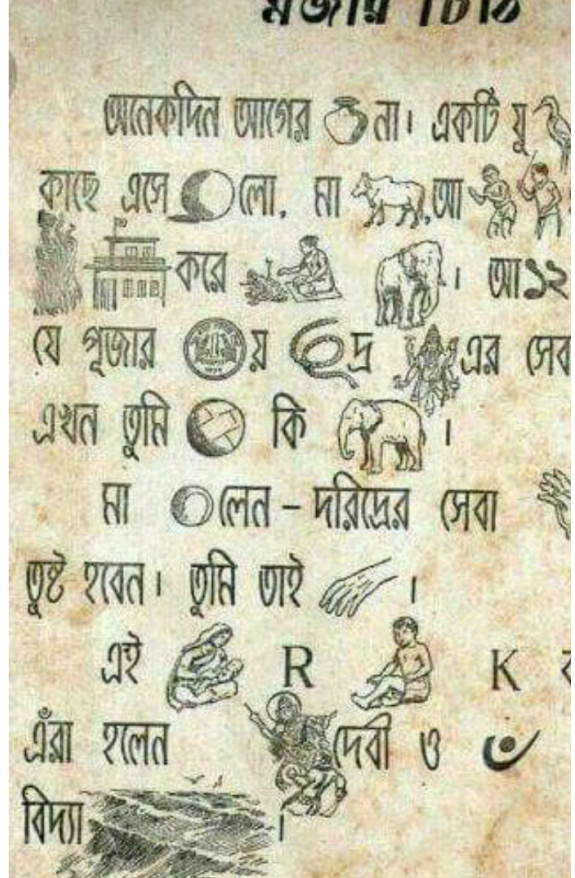 মজার চিঠি
অনেকদিন আগের না। একটি যু
কাছে এসে লো, মা ,আ
করে । আ১২
যে পূজার য় দ্র এর সেব
এখন তুমি কি ।
মা লেন – দরিদ্রের সেবা
তুষ্ট হবেন। তুমি তাই ।
এই R K
এঁরা হলেন দেবী ও
বিদ্যা ।